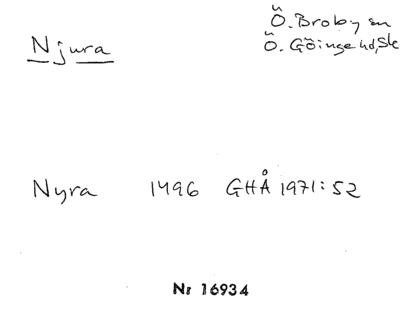 Njura
Ö. Broby sn
Ö. Göinge hd, Sk
Nyra 1496 GHÅ 1971:52
Nr 16934